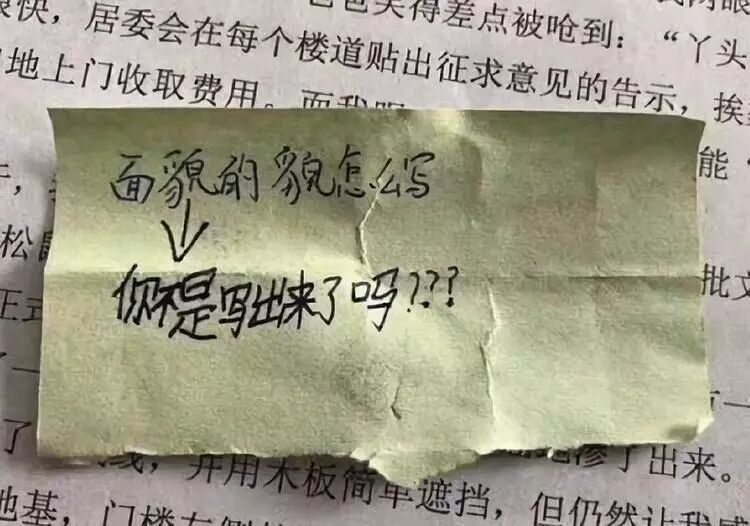 也笑得差点被呛到：“丫头
很快，居委会在每个楼道贴出征求意见的告示，挨
地上门收取费用。而我
能
面貌的貌怎么写
↓
你不是写出来了吗???
松鼠
批文
正式
了一
渗了出来。
了 线，并用木板简单遮挡，但仍然让我感
地基，门楼左侧